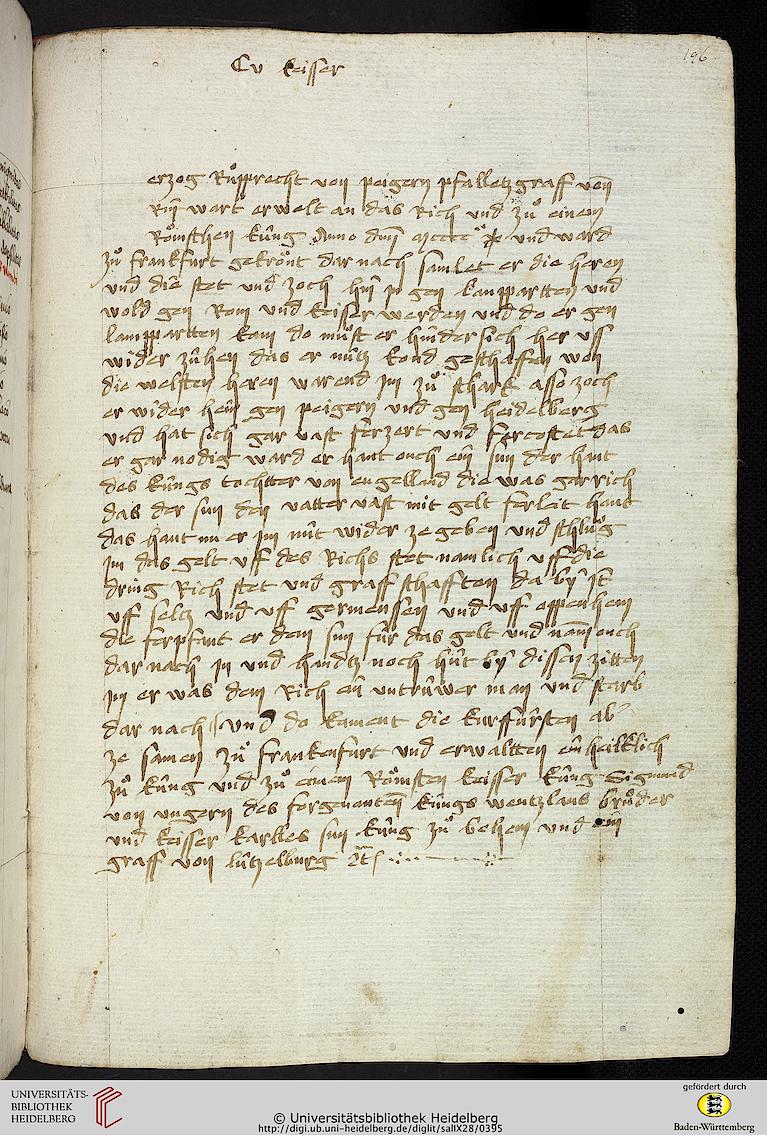 Cv keisser
196
erzog Růpprecht von peigern pfalletzgraff von
Rin wart erwelt an das Rich vnd zů einem
Römschen küng Anno dm̄ mcccc vnd ward
zů frankfurt gekrönt dar nach samlet er die heren
vnd die stet vnd zoch hin in gen lamppartten vnd
wold gen Rom vnd keiser werden vnd do er gen
lamppartten kam do můst er hindersich her vss
wider zühen das er nütz kond geschaffen won
die welsten heren warend im zů stark also zoch
er wider hein gen peigern vnd gen heidelberg
vnd hat sich gar vast ferzert vnd fercostet das
er gar nodig ward er hant ouch ein sun der hant
des küngs tochtter von engelland die was gar rich
das der sun den vatter vast mit gelt ferleit hant
das hant nu er im nüt wider ze geben vnd schlůg
im das gelt vff des Richs stet namlich vff die
dring Rich stet vnd graff schafften da by ist
vff seltz vnd vff germensen vnd vff oppenhem
die ferpfant er dem sun für das gelt vnd nam ouch
dar nach in vnd handtz noch hüt by dissen zitten
in er was dem Rich ein vntrüwer man vnd starb
dar nach vnd do kament die kurffürsten ab
ze samen zů frankenfurt vnd erwaltten einheiklich
zů küng vnd zů einem Römsten keisser küng Sigmund
von vngern des forgenanten küngs wentzlaus brůder
vnd keisser karlles sun küng zů behem vnd ein
graff von lützelburg
UNIVERSITÄTS-
BIBLIOTHEK
HEIDELBERG
© Universitätsbibliothek Heidelberg
http://digi.ub.uni-heidelberg.de/diglit/salIX28/0395
gefördert durch
Baden-Württemberg